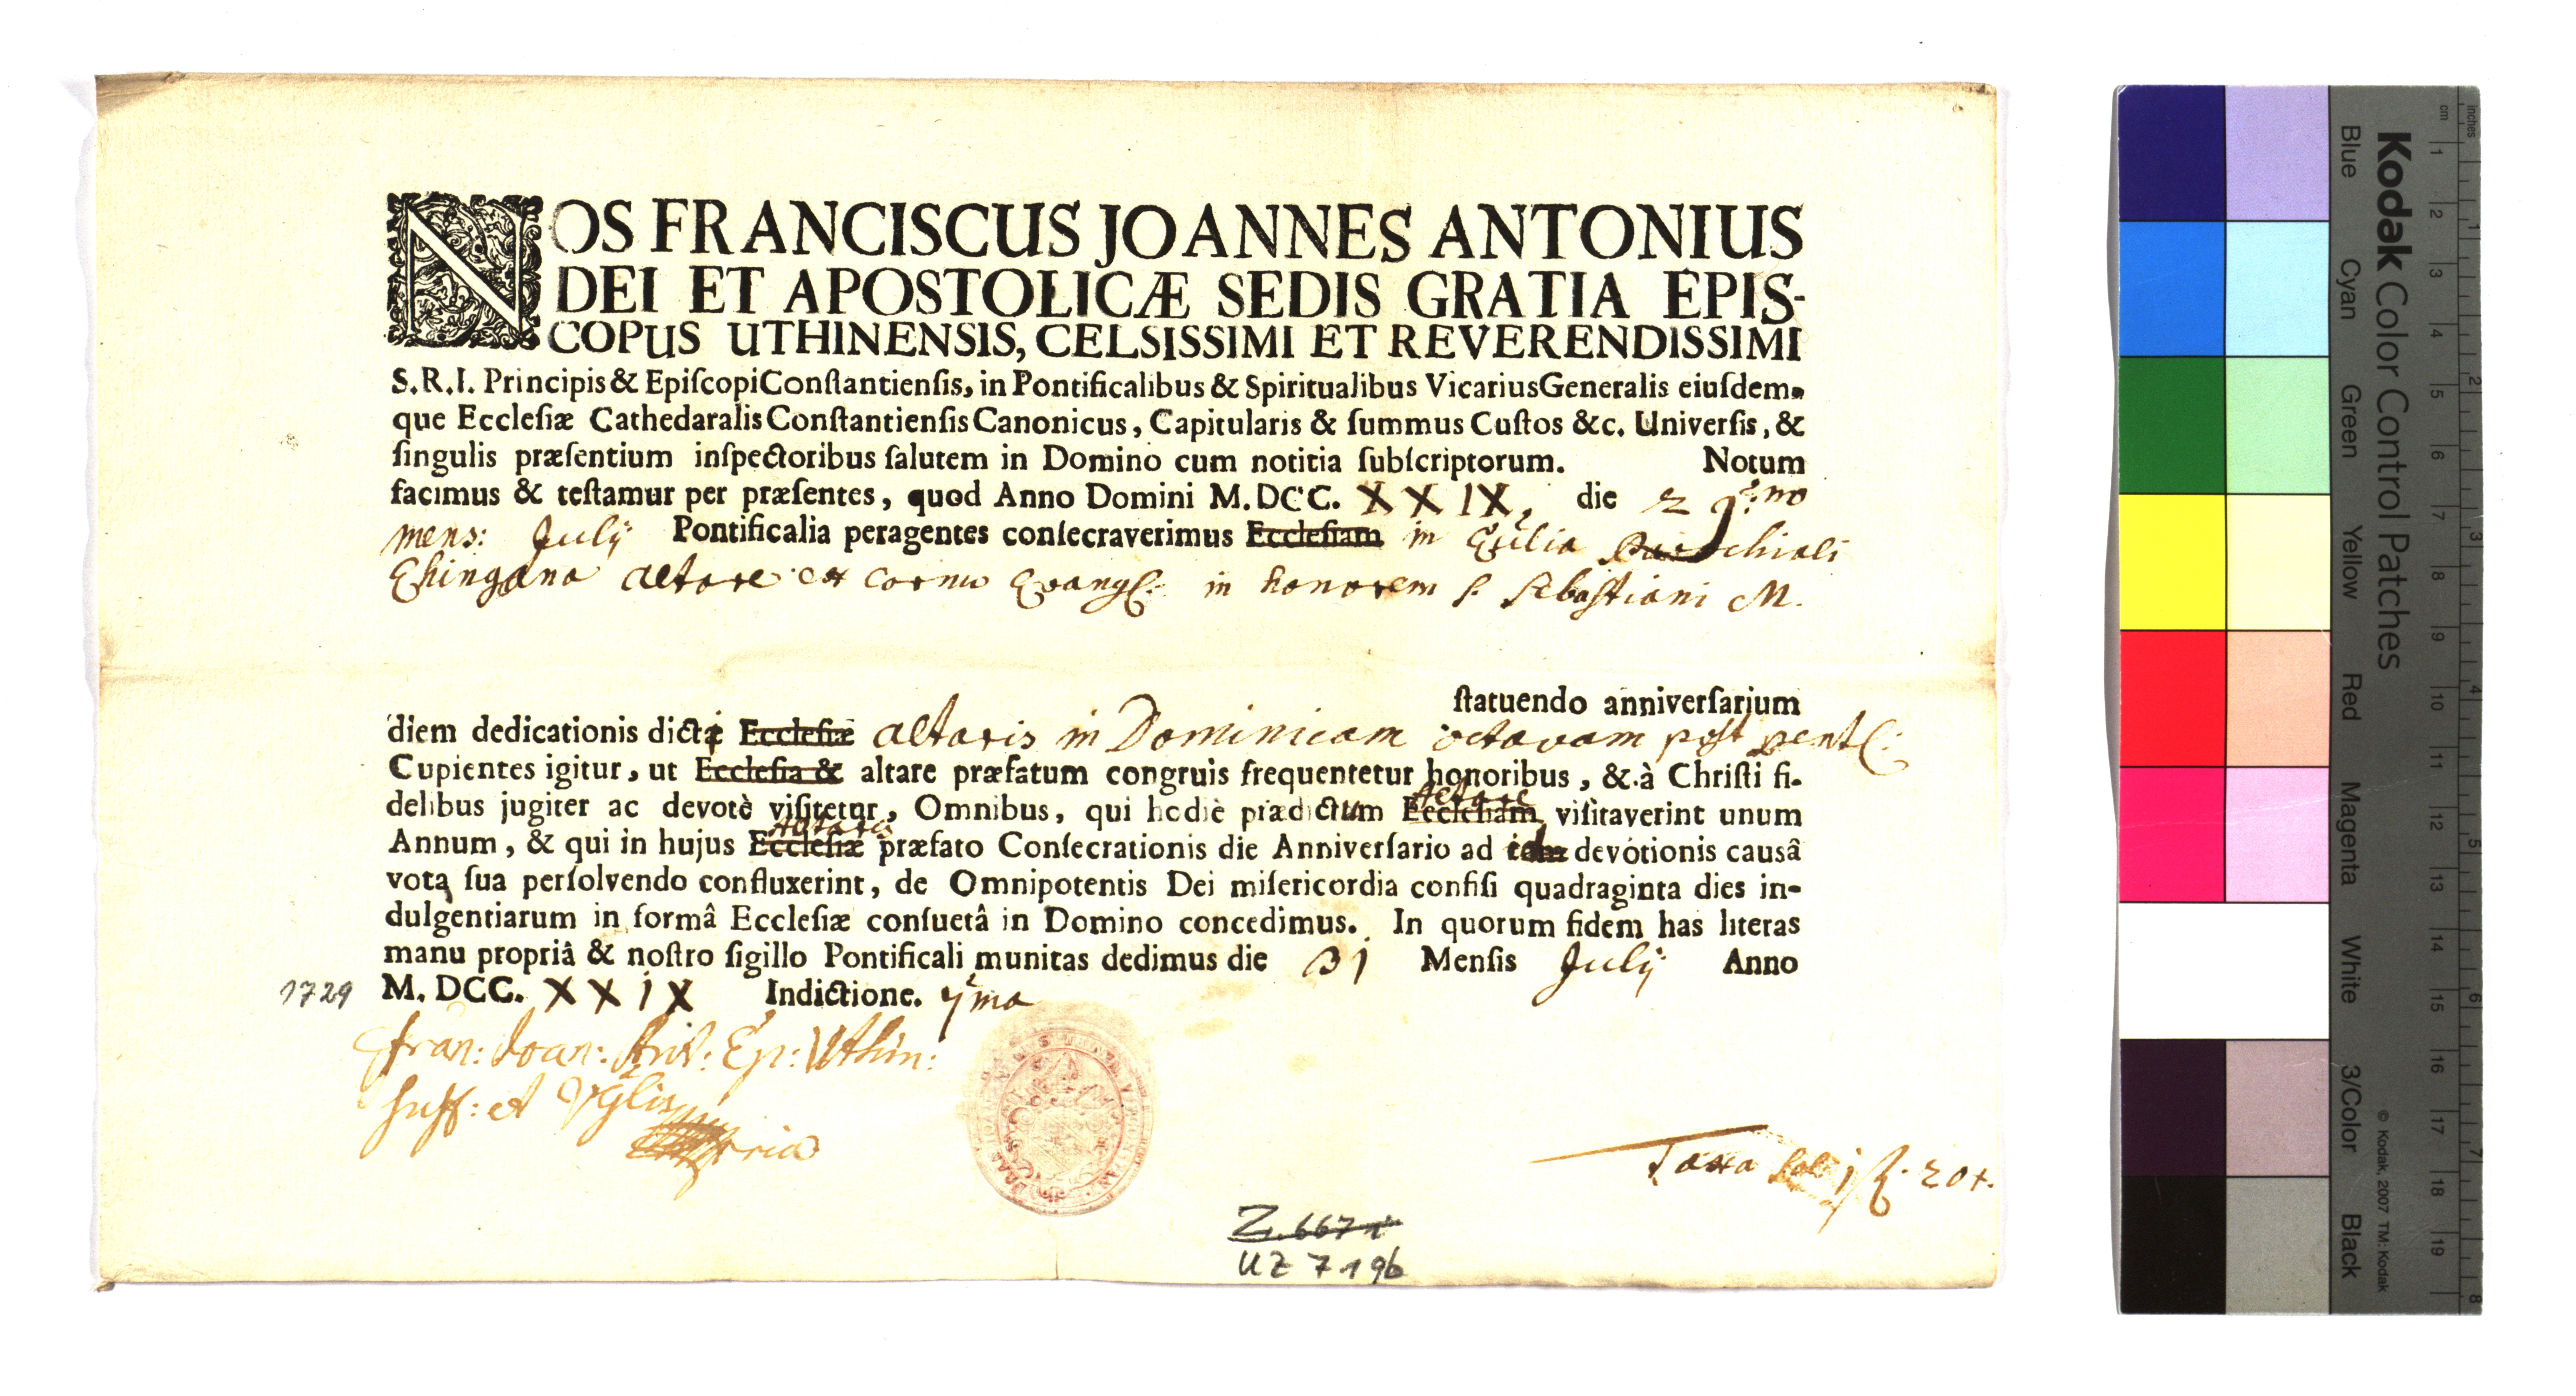 NOS FRANCISCUS JOANNES ANTONIUS
DEI ET APOSTOLICÆ SEDIS GRATIA EPIS-
COPUS UTHINENSIS, CELSISSIMI ET REVERENDISSIMI
S.R.I. Principis & Epiſcopi Conſtantienſis, in Pontificalibus & Spiritualibus Vicarius Generalis eiuſdem-
que Eccleſiæ Cathedaralis Conſtantienſis Canonicus, Capitularis & ſummus Cuſtos &c. Univerſis, &
ſingulis præſentium inſpectoribus ſalutem in Domino cum notitia ſubſcriptorum. Notum
facimus & teſtamur per præſentes, quod Anno Domini M. DCC. XXIX, die 29no
mens: Julÿ Pontificalia peragentes conſecraverimus Eccleſiam in Ecclia Parochiali
Ehingana altare ex cornu Evangl: in honorem S. Sebaſtiani M.
ſtatuendo anniverſarium
diem dedicationis dicti Eccleſiæ altaris in Dominicam octavam poſt pent:
Cupientes igitur, ut Eccleſia & altare præfatum congruis frequentetur honoribus, & à Chriſti fi-
delibus jugiter ac devotè viſitetur, Omnibus, qui hodiè prædictum Eccleſiam altare viſitaverint unum
Annum, & qui in hujus Eccleſiæ altaris præfato Conſecrationis die Anniverſario ad devotionis causâ
vota ſua perſolvendo confluxerint, de Omnipotentis Dei miſericordia confiſi quadraginta dies in-
dulgentiarum in formâ Eccleſiæ conſuetâ in Domino concedimus. In quorum fidem has literas
manu propriâ & noſtro ſigillo Pontificali munitas dedimus die 31 Menſis Julÿ Anno
1729 M. DCC. XXIX Indictione. 7ma
Fran: Joan: Ant: Ep: Uthin:
Suff: et Vglis
Taxa 1 f. 20 x.
Z. 667
UZ 7 196
Kodak Color Control Patches
Blue Cyan Green Yellow Red Magenta White 3/Color Black
© Kodak, 2007 TM: Kodak
inches 1 2 3 4 5 6 7 8
cm 1 2 3 4 5 6 7 8 9 10 11 12 13 14 15 16 17 18 19